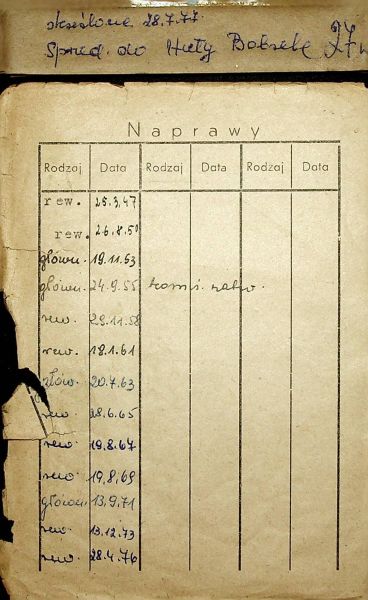 skreślone 28.7.77.
Sprzed. do Huty Bobrek
Naprawy
Rodzaj Data Rodzaj Data Rodzaj Data
rew. 25.3.47
rew. 26.8.50
główn. 19.11.53
główn. 24.9.55
rew. 29.11.58
rew. 18.1.61
główn. 20.7.63
rew. 28.6.65
rew. 19.8.67
rew. 19.8.69
główn. 13.9.71
rew. 13.12.73
rew. 28.4.76